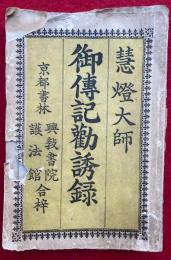 慧燈大師
御傳記勸誘録
京都書林
興教書院
護法館
合梓